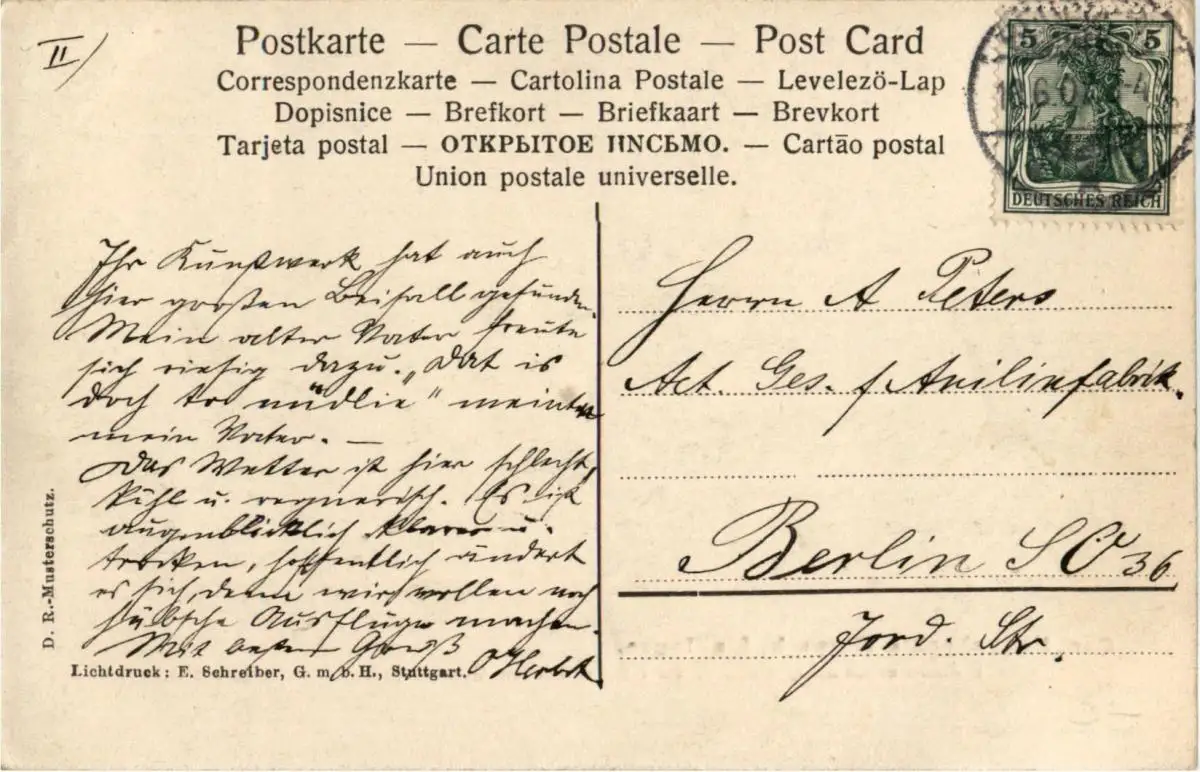 II
Postkarte — Carte Postale — Post Card
Correspondenzkarte — Cartolina Postale — Levelezö-Lap
Dopisnice — Brefkort — Briefkaart — Brevkort
Tarjeta postal — ОТКРЫТОЕ ПNСЬМО. — Cartão postal
Union postale universelle.
5 5
DEUTSCHES REICH
Ihr Kunstwerk hat auch
hier großen Beifall gefunden.
Mein alter Vater freute
sich riesig dazu. „Dat is
doch to nüdlie“ meinte
mein Vater. —
Das Wetter ist hier schlecht,
kühl u. regnerisch. Es ist
augenblicklich u.
trocken, hoffentlich ändert
es sich, denn wir wollen noch
hübsche Ausflüge machen.
Mit besten Gruß
O Herbst
Herrn A Peters
Act. Ges. f Anilinfabrik.
Berlin SO 36
Jord. Str.
D. R.-Musterschutz.
Lichtdruck: E. Schreiber, G. m. b. H., Stuttgart.